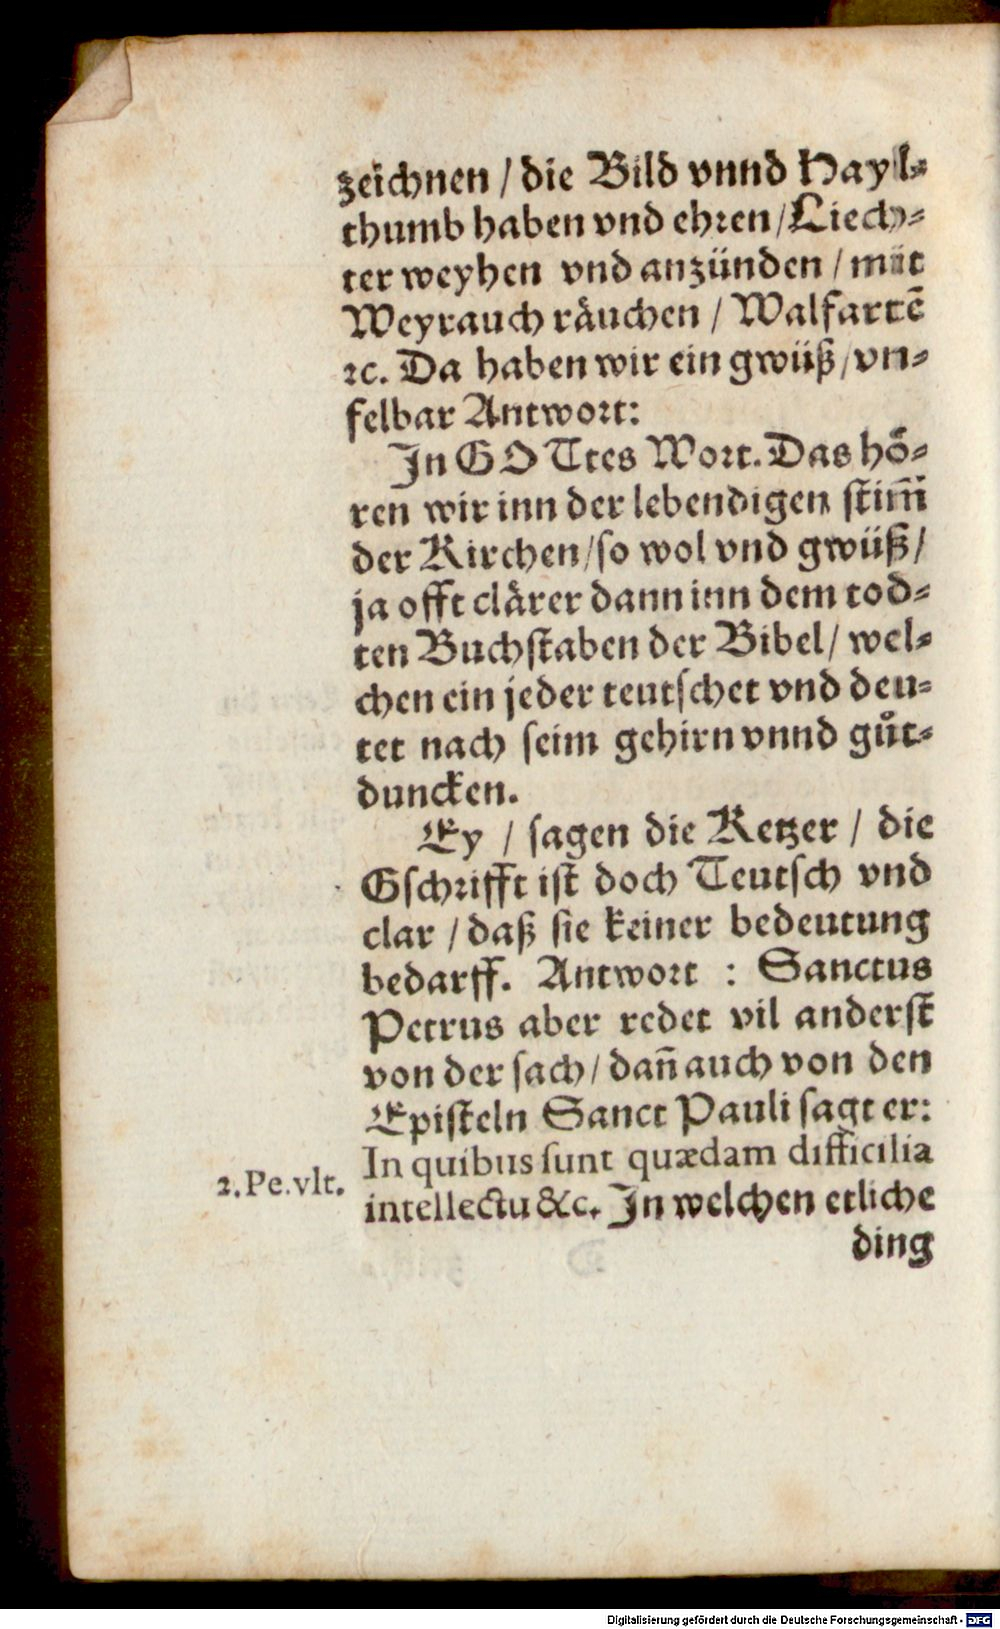 zeichnen / die Bild vnnd Hayl⸗
thumb haben vnd ehren / Liech⸗
ter weyhen vnd anzünden / mit
Weyrauch räuchen / Walfartē
ꝛc. Da haben wir ein gwüß / vn⸗
felbar Antwort:
In GOTtes Wort. Das hö⸗
ren wir inn der lebendigen stim̄
der Kirchen / so wol vnd gwüß /
ja offt clärer dann inn dem tod⸗
ten Buchstaben der Bibel / wel⸗
chen ein jeder teutschet vnd deu⸗
tet nach seim gehirn vnnd gůt⸗
duncken.
Ey / sagen die Ketzer / die
Gschrifft ist doch Teutsch vnd
clar / daß sie keiner bedeutung
bedarff. Antwort : Sanctus
Petrus aber redet vil anderst
von der sach / dañ auch von den
Episteln Sanct Pauli sagt er:
In quibus sunt quædam difficilia
2. Pe. vlt.
intellectu &c. In welchen etliche
ding
Digitalisierung gefördert durch die Deutsche Forschungsgemeinschaft - DFG